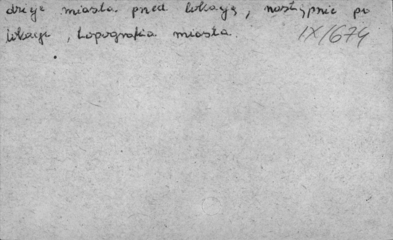 dzieje miasta przed lokacją, następnie po
lokacji, topografia miasta.
IX/674